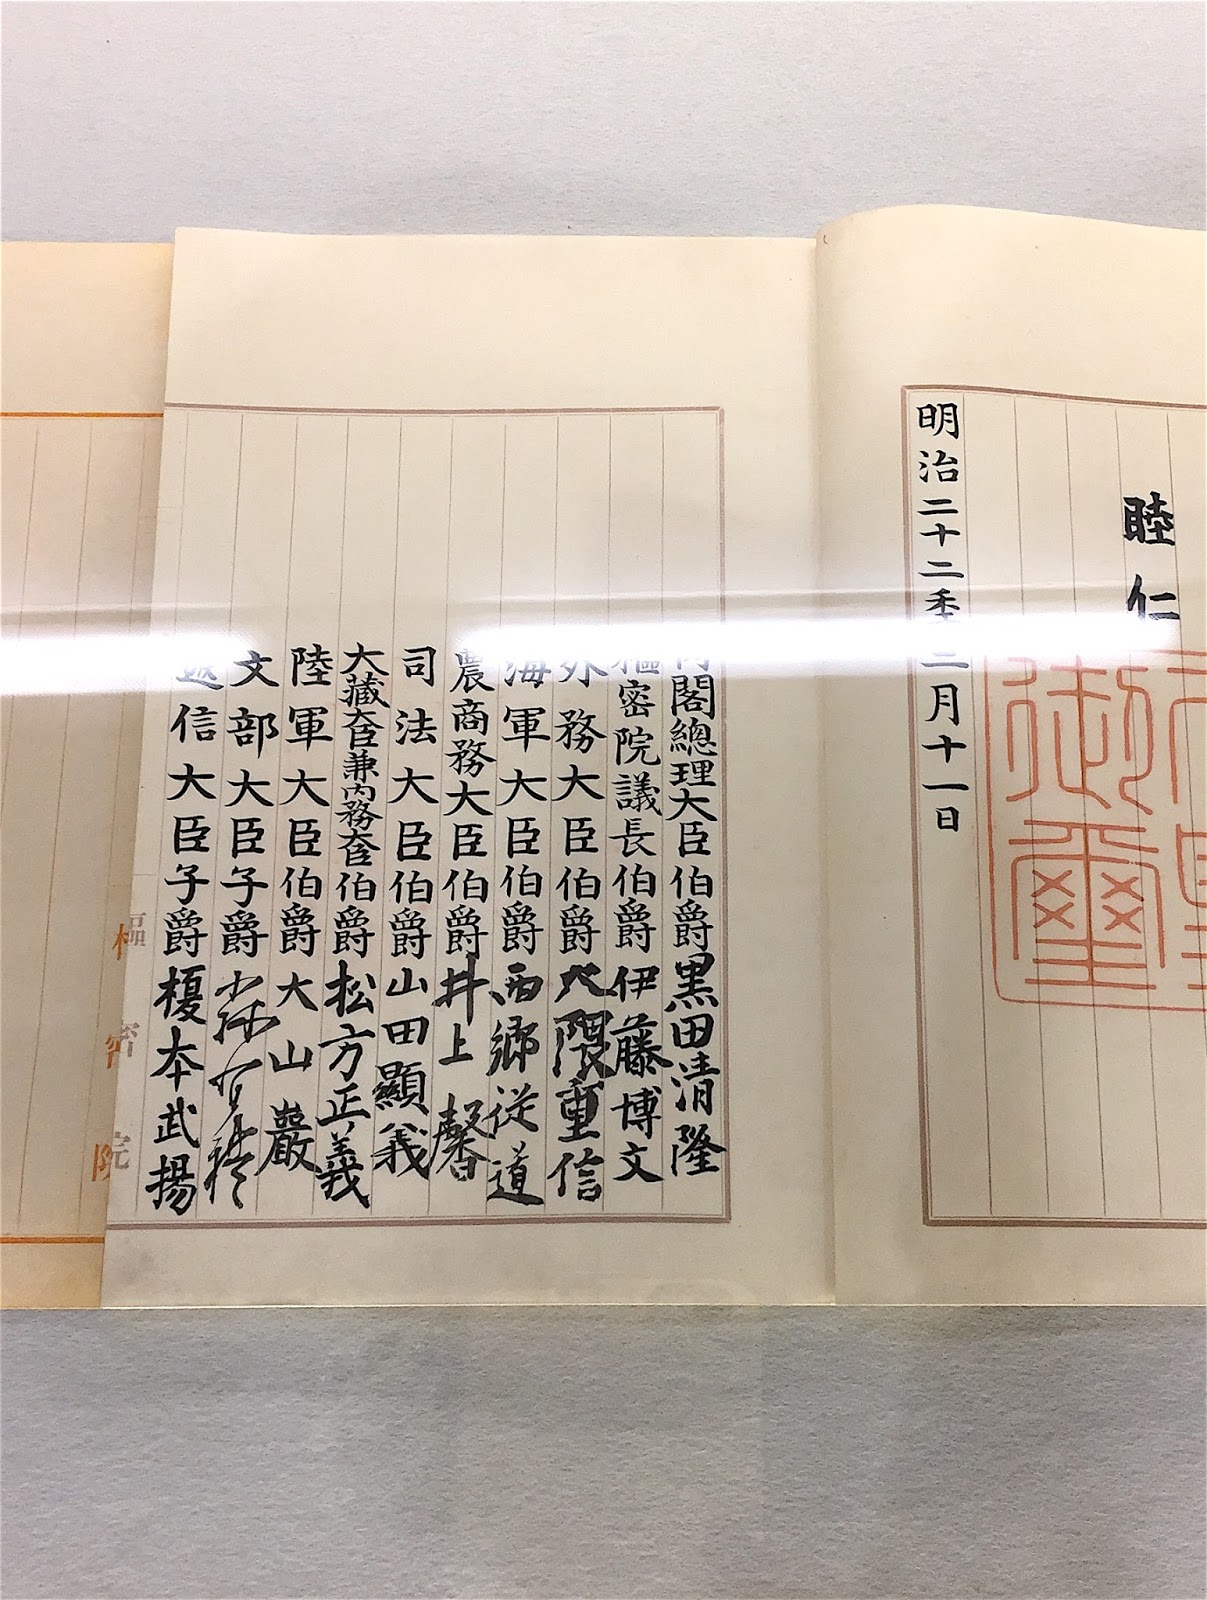 睦仁
御
璽
明治二十二年二月十一日
內閣總理大臣伯爵黑田清隆
樞密院議長伯爵伊藤博文
外務大臣伯爵大隈重信
海軍大臣伯爵西鄉従道
農商務大臣伯爵井上馨
司法大臣伯爵山田顯義
大藏大臣兼內務大臣伯爵松方正義
陸軍大臣伯爵大山巖
文部大臣子爵森有禮
遞信大臣子爵榎本武揚
樞密院